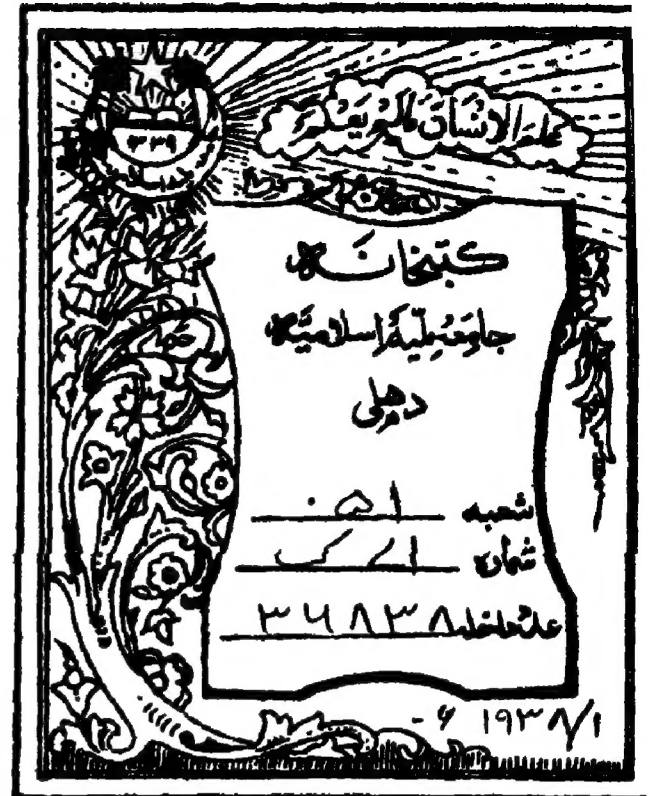 علم الانسان مالم یعلم
۳۳۹
کتبخانہ
جامعہ ملیہ اسلامیہ
دہلی
شعبہ ۰۵۱
شمارہ
عدد داخلہ ۳۶۸۳۸
۱۹۳۸/۱